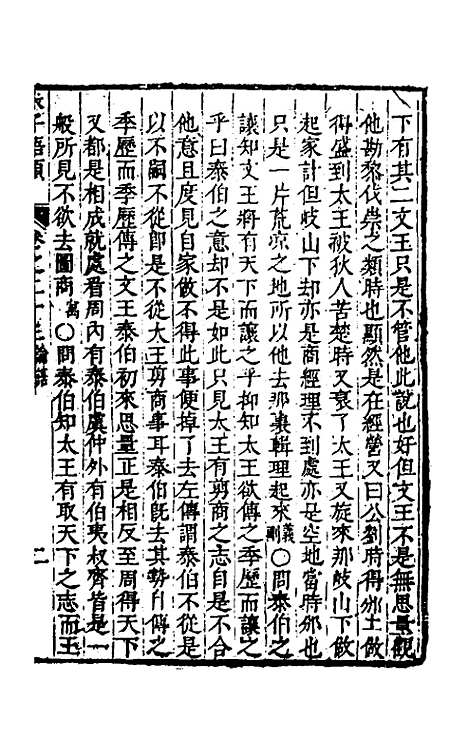 下有其二文王只是不管他此說也好但文王不是無思量觀
他勘黎伐崇之類時也顯然是在經營又曰公劉時得邠土做
得盛到太王被狄人苦楚時又衰了太王又旋來那岐山下做
起家計但岐山下却亦是商經理不到處亦是空地當時邠也
只是一片荒凉之地所以他去那裏輯理起來義剛○問泰伯之
讓知文王將有天下而讓之乎抑知太王欲傳之季歷而讓之
乎曰泰伯之意却不是如此只見太王有剪商之志自是不合
他意且度見自家做不得此事便掉了去左傳謂泰伯不從是
以不嗣不從即是不從大王剪商事耳泰伯旣去其勢只傳之
季歷而季歷傳之文王泰伯初來思量正是相反至周得天下
又都是相成就處看周內有泰伯虞仲外有伯夷叔齊皆是一
般所見不欲去圖商寓○問泰伯知太王有取天下之志而王
子語類 卷之三十五 論語 二